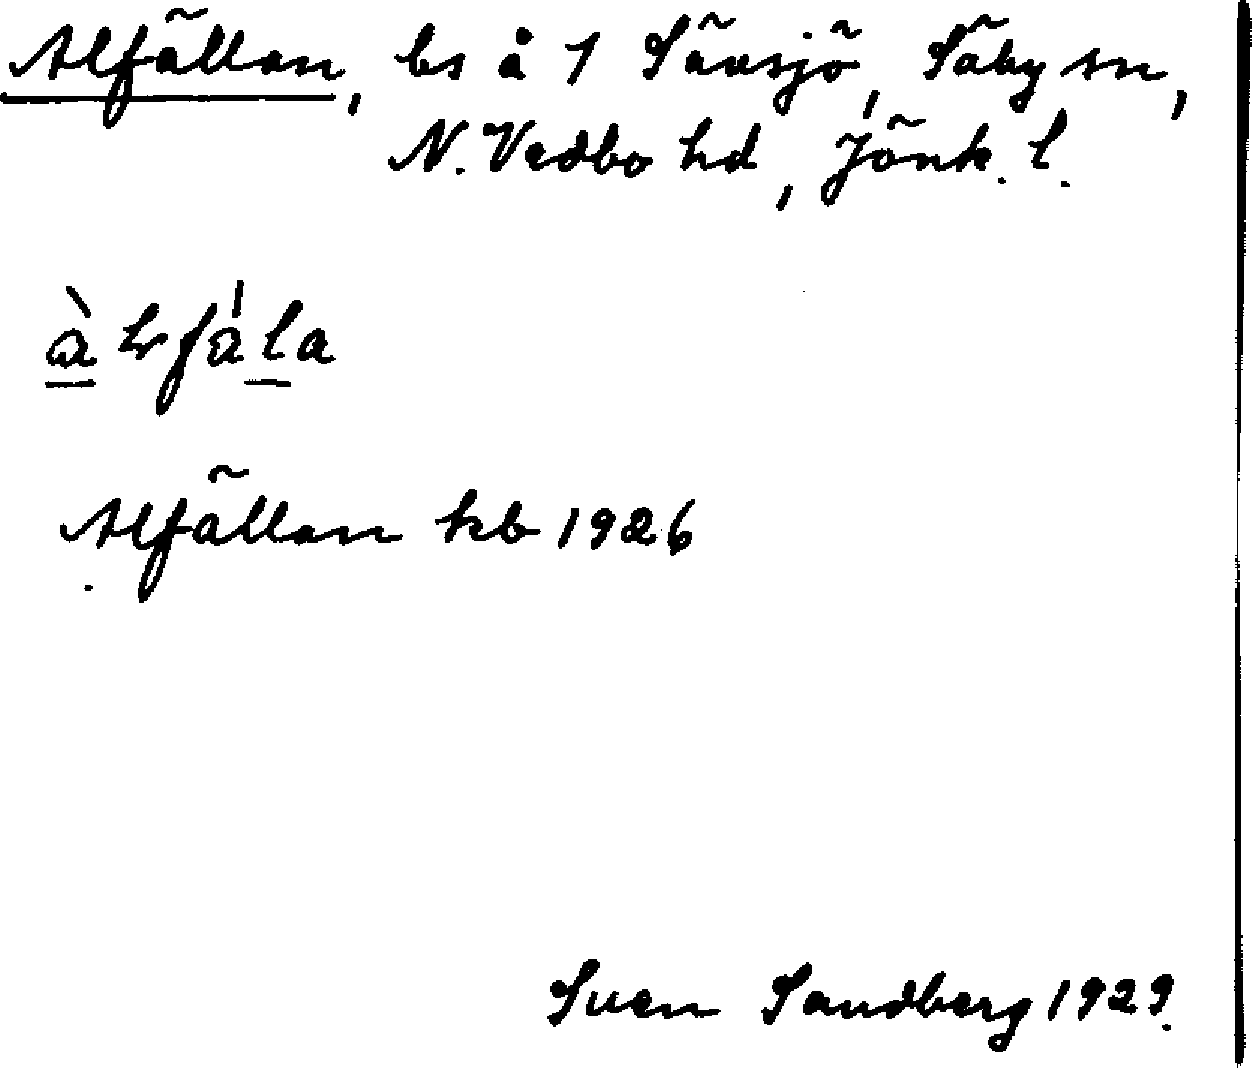 Alfällan, bs å 1 Sävsjö, Säby sn,
N. Vedbo hd, Jönk. l.
Alfällan kb 1926
Sven Sandberg 1929.